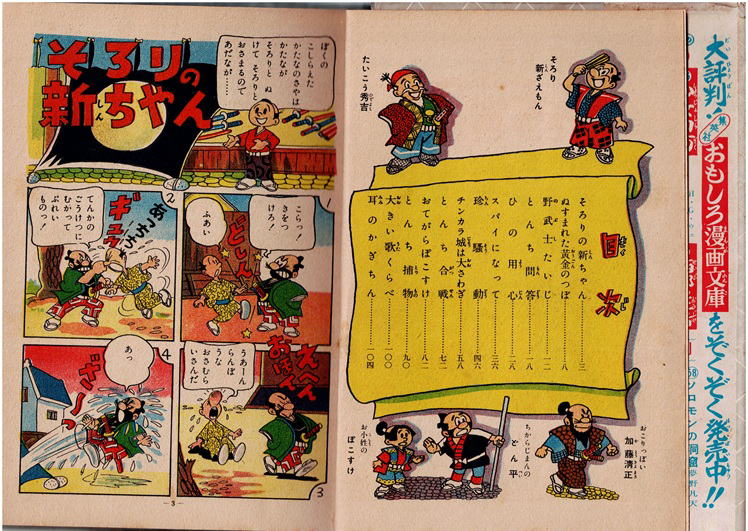 大評判!
集英社
おもしろ漫画文庫
をぞくぞく発売中!!
ソロモンの洞窟
夢野凡天
そろり
新ざえもん
たいこう秀吉
目次
そろりの新ちゃん…………三
ぬすまれた黄金のつぼ…………八
野武士たいじ…………一二
とんち問答…………一八
ひの用心…………二八
スパイになって…………三六
珍騒動…………四六
チンカラ城は大さわぎ…………五八
とんち合戦…………七二
おてがらぼこすけ…………八二
とんち捕物…………九〇
大きい歌くらべ…………一〇〇
耳のかぎちん…………一〇四
おこりっぽい
加藤清正
ちからじまんの
どん平
お小姓の
ぼこすけ
そろりの
新ちゃん
ぼくの
こしらえた
かたなのさやは
かたなが
そろりと ぬ
けて そろりと
おさまるので
あだなが……
1
こらっ!
きを
つけろ!
ふあい
どしん
2
あっちち
ギュッ
てんかの
ごうけつに
むかって
ぶれい
ものっ!
3
えへん
おほん
うあーん
らんぼ
うな
おさむら
いさんだ
4
あっ
ざーっ
—3—